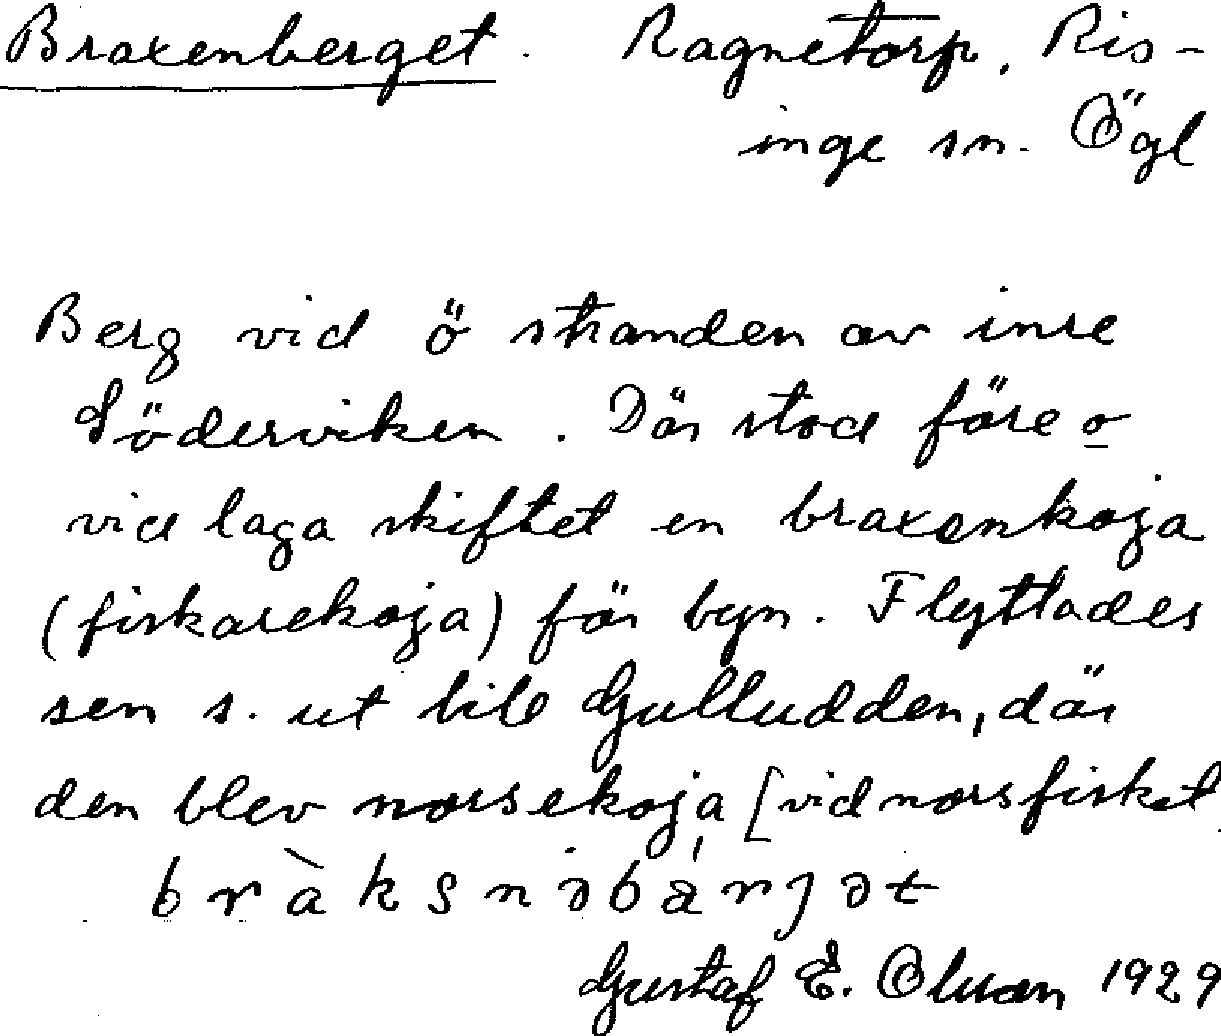 Braxenberget. Ragnetorp, Ris-
inge sn. Ögl
Berg vid ö stranden av inre
Söderviken. Där stod före o
vid laga skiftet en braxenkoja
(fiskarekoja) för byn. Flyttades
sen s. ut till Gulludden, där
den blev norsekoja [vid norsfisket
bràksnəbä́rjət
Gustaf E. Olsson 1929